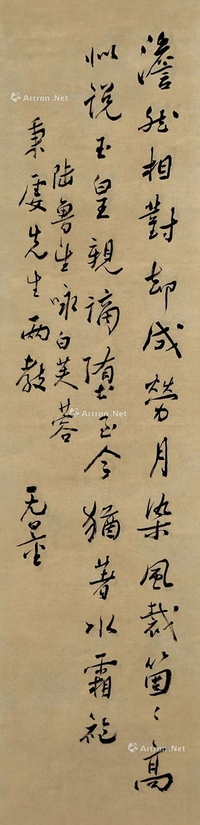 澹然相對却成勞月染風裁箇〻高
似說玉皇親謫墮至今猶著水霜袍
陸魯望詠白芙蓉
秉虔先生兩教
无量
Artron.Net
Artron.Net
Artron.Net
Artron.Net